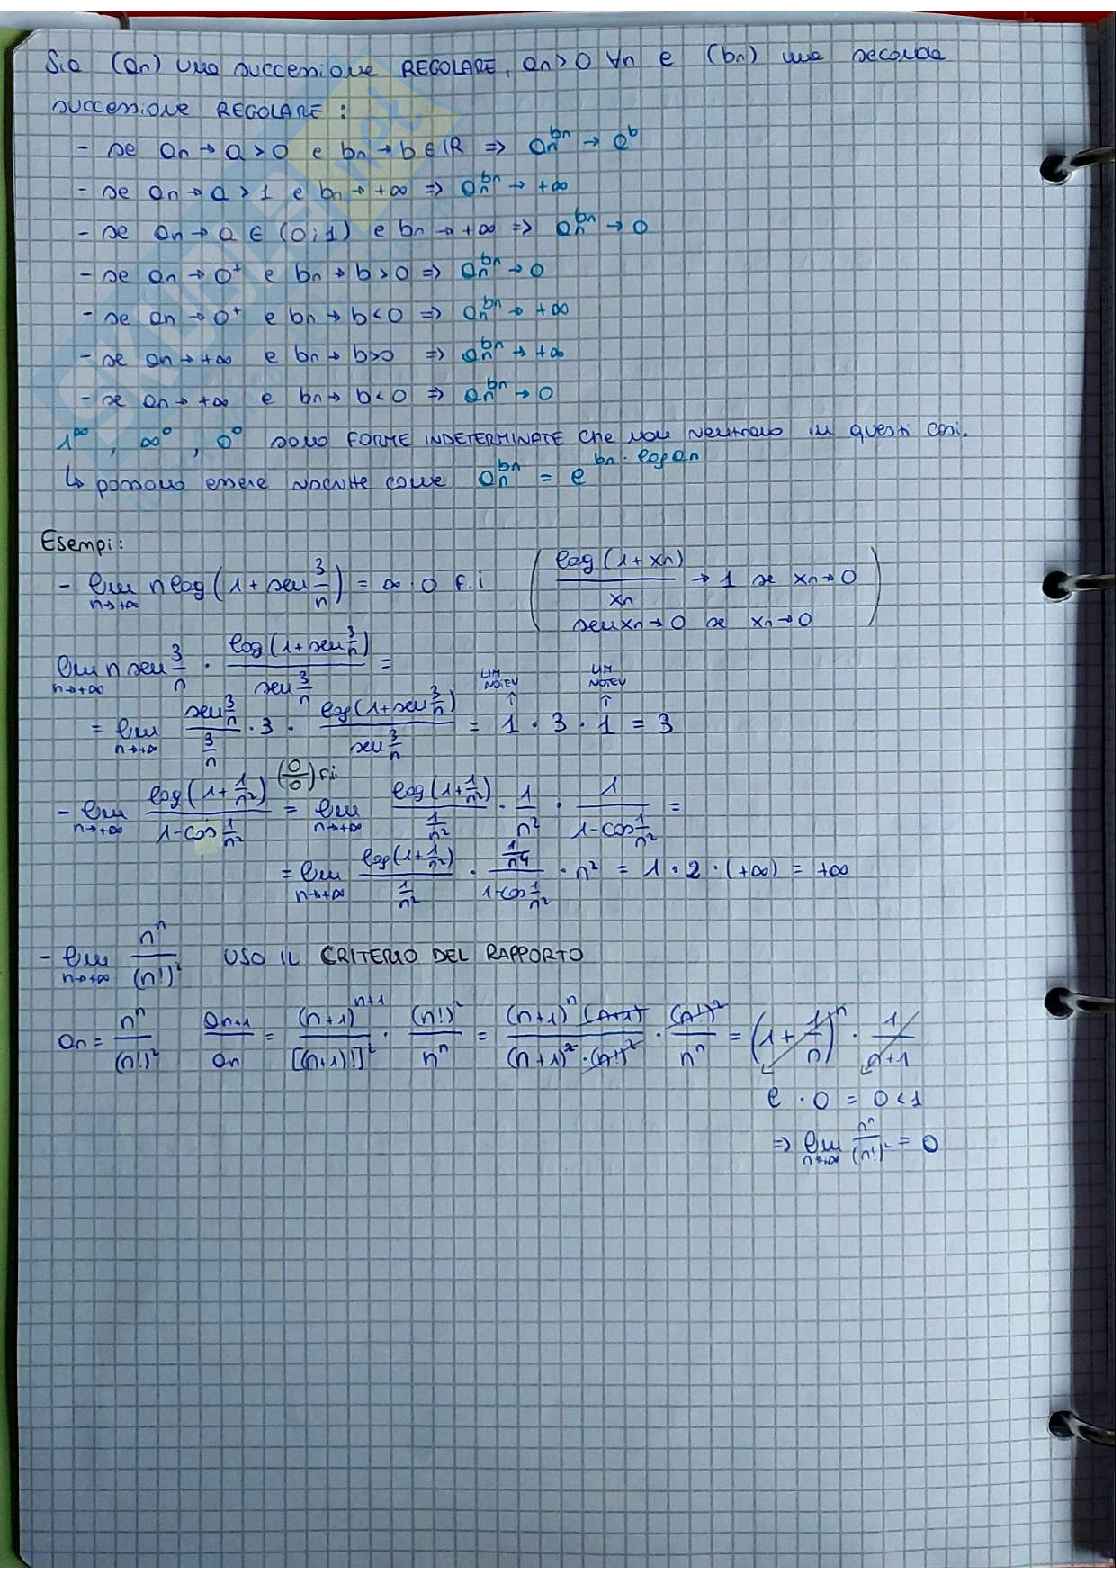 Sia (an) una successione REGOLARE, an>0 ∀n e (bn) una seconda
successione REGOLARE :
- se an → a > 0 e bn → b ∈ ℝ => an^bn → a^b
- se an → a > 1 e bn → +∞ => an^bn → +∞
- se an → a ∈ (0;1) e bn → +∞ => an^bn → 0
- se an → 0⁺ e bn → b > 0 => an^bn → 0
- se an → 0⁺ e bn → b < 0 => an^bn → +∞
- se an → +∞ e bn → b>0 => an^bn → +∞
- se an → +∞ e bn → b<0 => an^bn → 0
1^∞, ∞^0, 0^0 sono FORME INDETERMINATE che non rientrano in questi casi.
↳ possono essere riscritte come an^bn = e^(bn · log an)
Esempi:
- lim n→+∞ n log(1 + sen 3/n) = ∞ · 0 f.i ( log(1+xn)/xn → 1 se xn→0
sen xn→0 se xn→0 )
lim n→+∞ n sen 3/n · log(1+sen 3/n)/sen 3/n =
LIM NOTEV LIM NOTEV
= lim n→+∞ (sen 3/n)/(3/n) · 3 · log(1+sen 3/n)/(sen 3/n) = 1 · 3 · 1 = 3
- lim n→+∞ log(1+1/n²)/(1-cos 1/n²) (0/0) f.i = lim n→+∞ log(1+1/n²)/(1/n²) · 1/n² · 1/(1-cos 1/n²) =
= lim n→+∞ log(1+1/n²)/(1/n²) · (1/n⁴)/(1-cos 1/n²) · n² = 1 · 2 · (+∞) = +∞
- lim n→+∞ n^n/(n!)² USO IL CRITERIO DEL RAPPORTO
an = n^n/(n!)² an+1/an = (n+1)^(n+1)/[(n+1)!]² · (n!)²/n^n = (n+1)^n (n+1)/((n+1)² · (n!)²) · (n!)²/n^n = (1 + 1/n)^n · 1/(n+1)
e · 0 = 0 < 1
=> lim n→+∞ n^n/(n!)² = 0